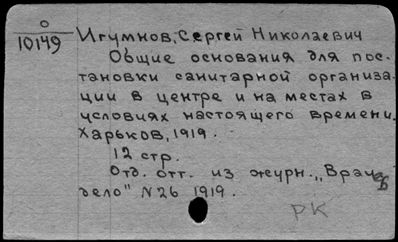 О
10149
Игумнов, Сергей Николаевич
Общие основания для пос-
тановки санитарной организа-
ции в центре и на местах в
условиях настоящего времени.
Харьков, 1919.
12 стр.
Отд. отт. из журн. „Врачеб.
дело" N26 1919.
РК